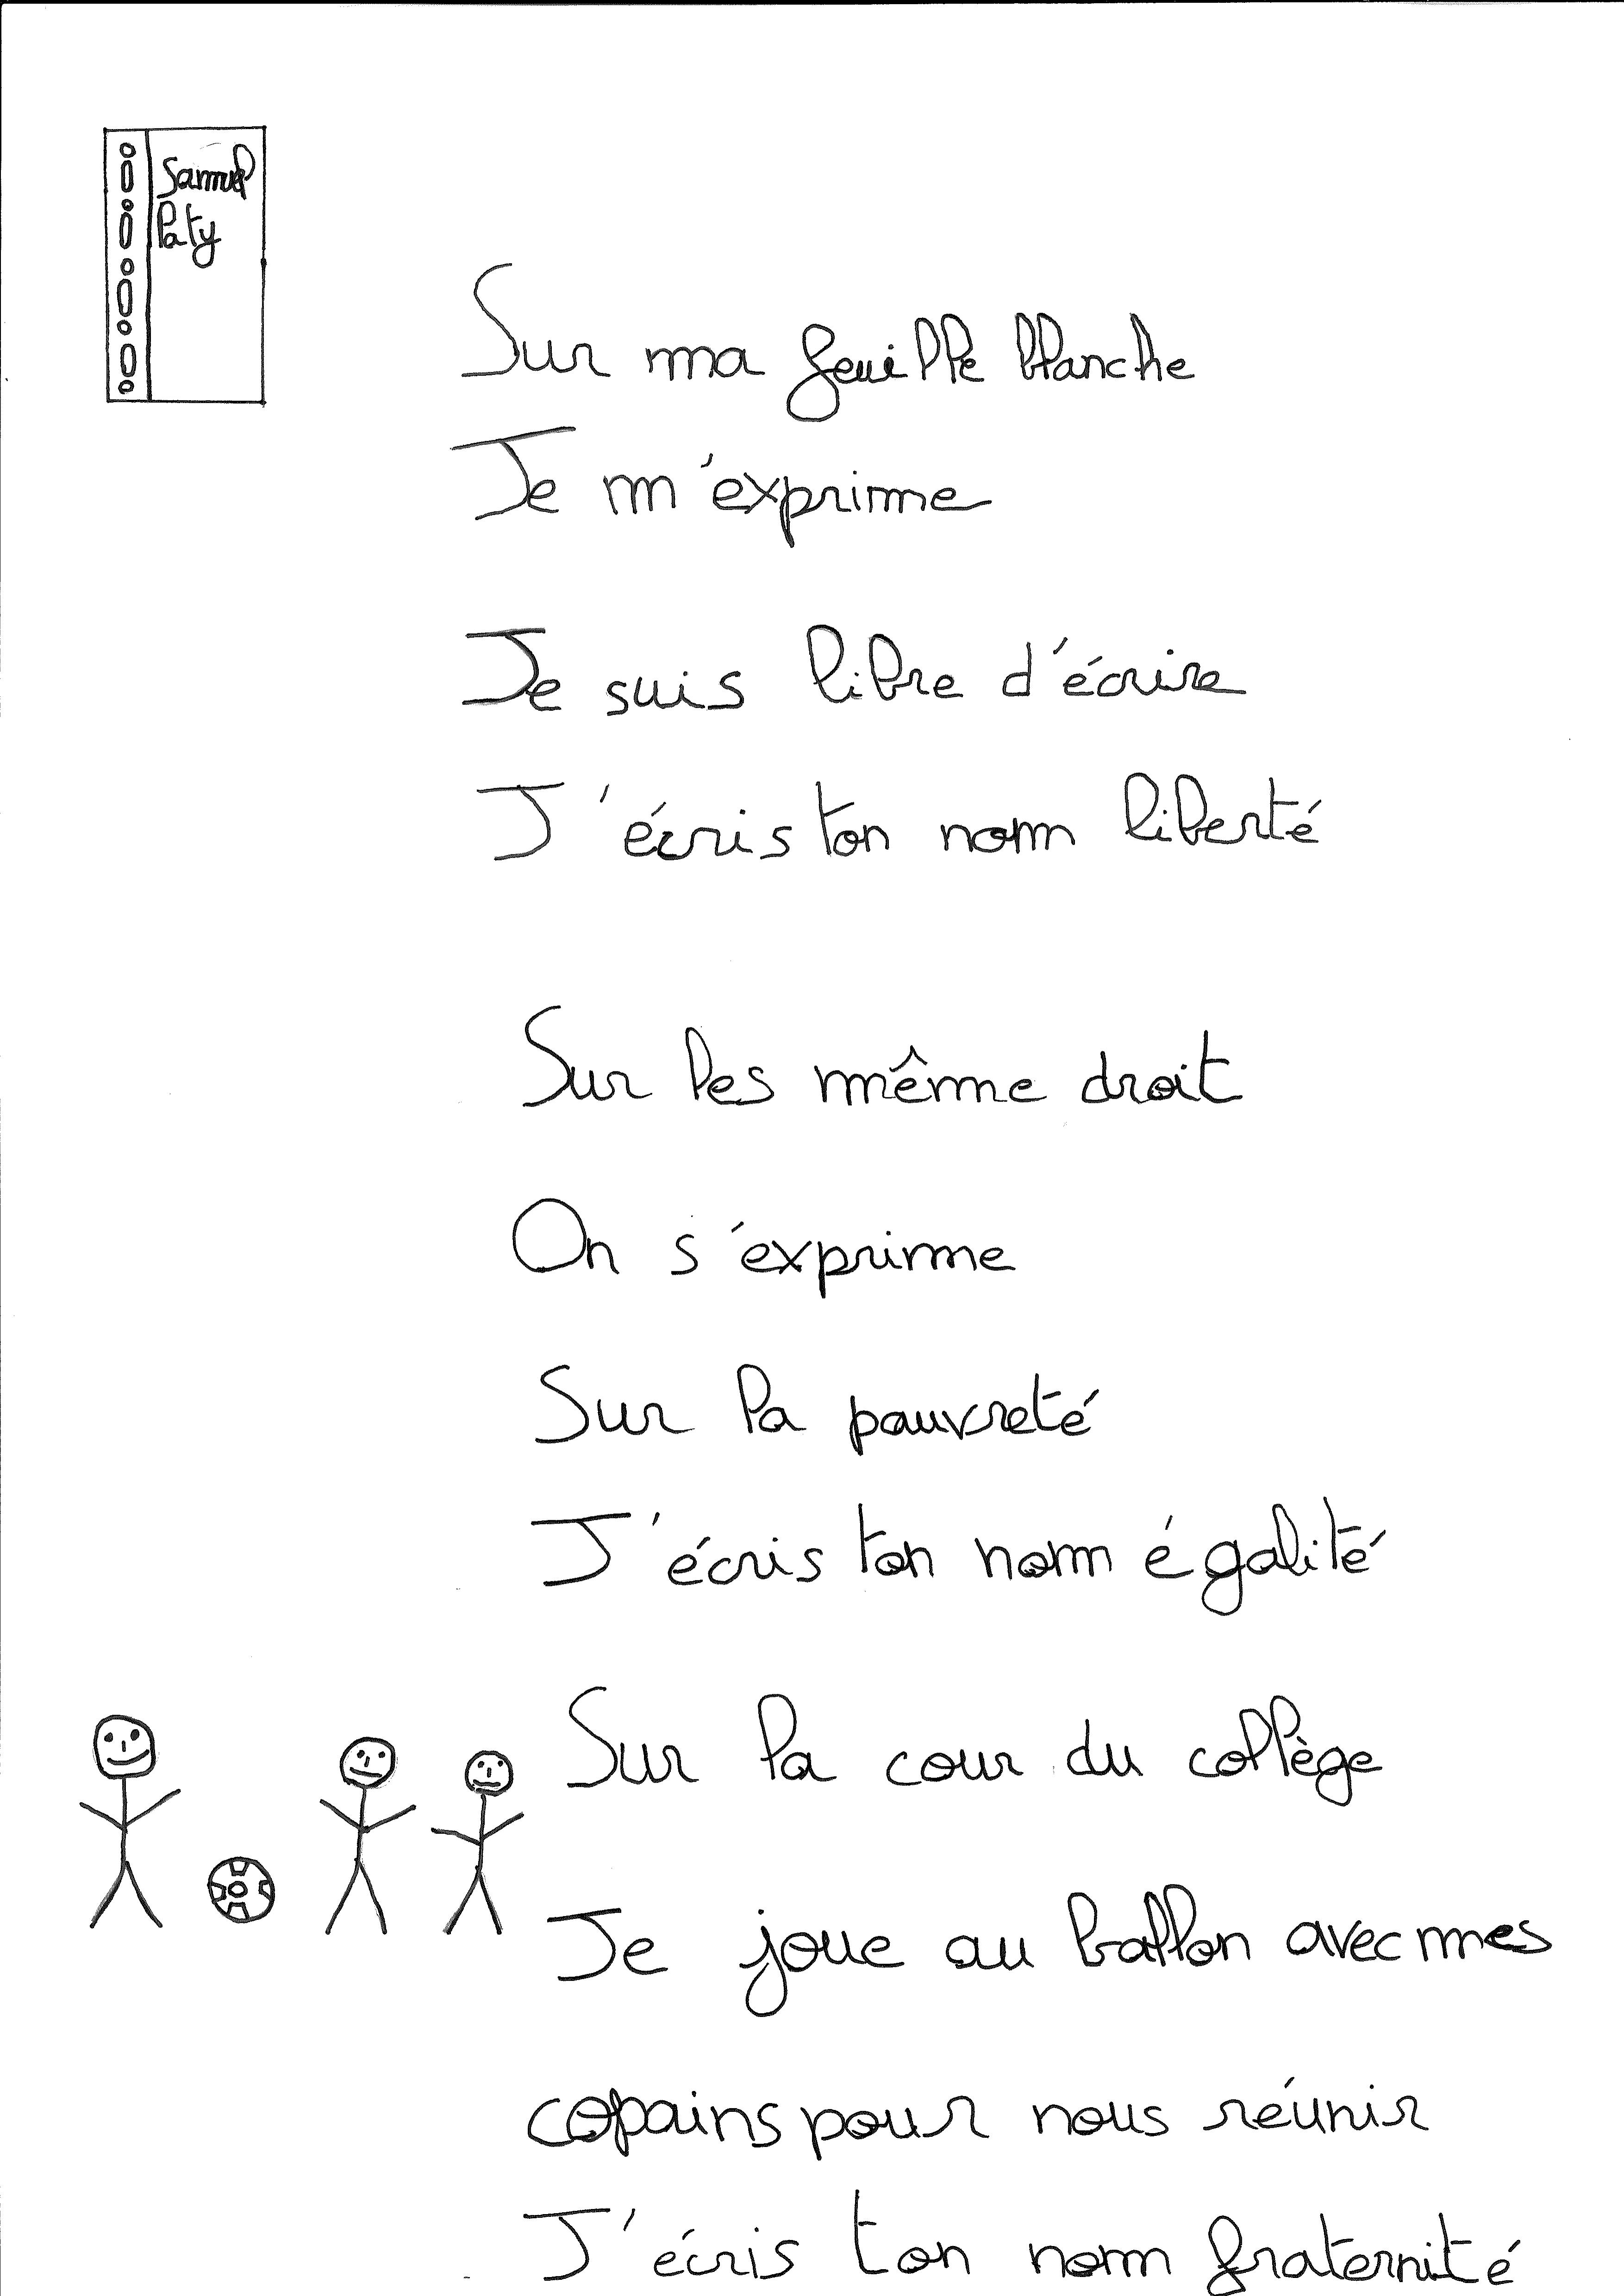 Samuel
Paty
Sur ma feuille blanche
Je m'exprime
Je suis libre d'écrire
J'écris ton nom liberté
Sur les même droit
On s'exprime
Sur la pauvreté
J'écris ton nom égalité
Sur la cour du collège
Je joue au ballon avec mes
copains pour nous réunir
J'écris ton nom fraternité